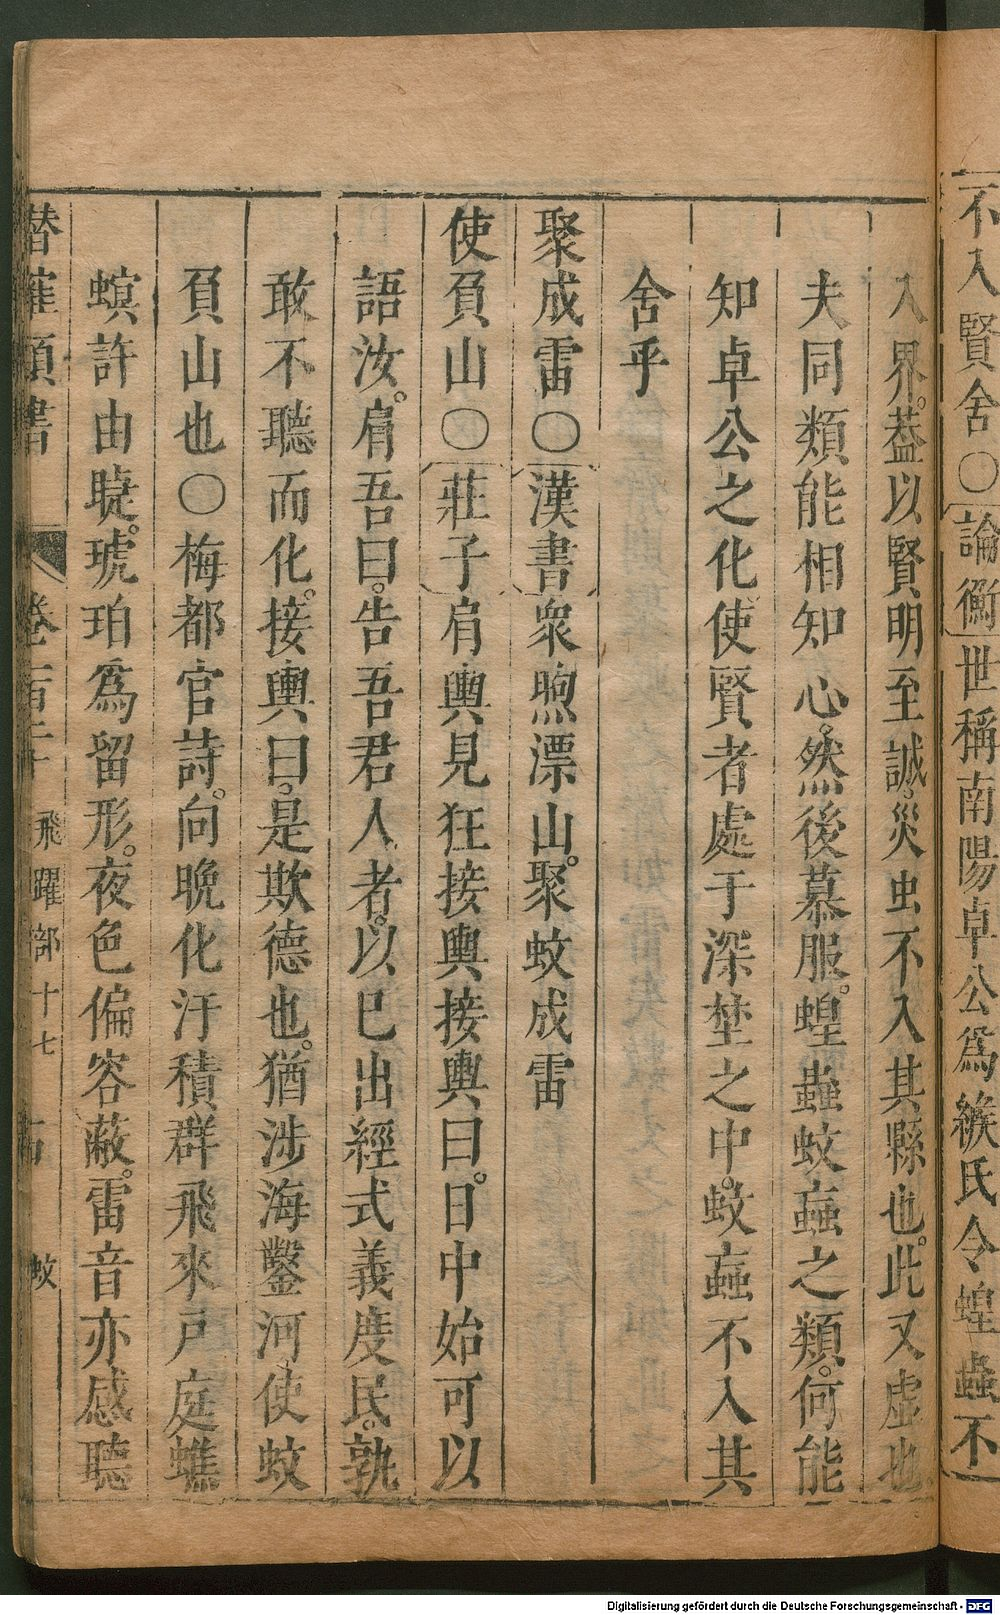 不入賢舍〇論衡世稱南陽卓公爲緱氏令蝗蟲不
入界。葢以賢明至誠。災虫不入其縣也。此又虛也
夫同類能相知心。然後慕服。蝗蟲蚊䖟之類。何能
知卓公之化。使賢者處于深埜之中。蚊䖟不入其
舍乎
聚成雷〇漢書衆煦漂山。聚蚊成雷
使負山〇莊子肩輿見狂接輿接輿曰。日中始可以
語汝。肩吾曰。告吾君人者。以巳出經式義度民。孰
敢不聽而化。接輿曰。是欺德也。猶涉海鑿河。使蚊
負山也〇梅都官詩。向晩化汙積群飛來戸庭蟭
螟許由睫。琥珀爲留形。夜色偏容蔽。雷音亦感聽
潛確類書 卷一百二十 飛躍部十七 蚊
Digitalisierung gefördert durch die Deutsche Forschungsgemeinschaft - DFG